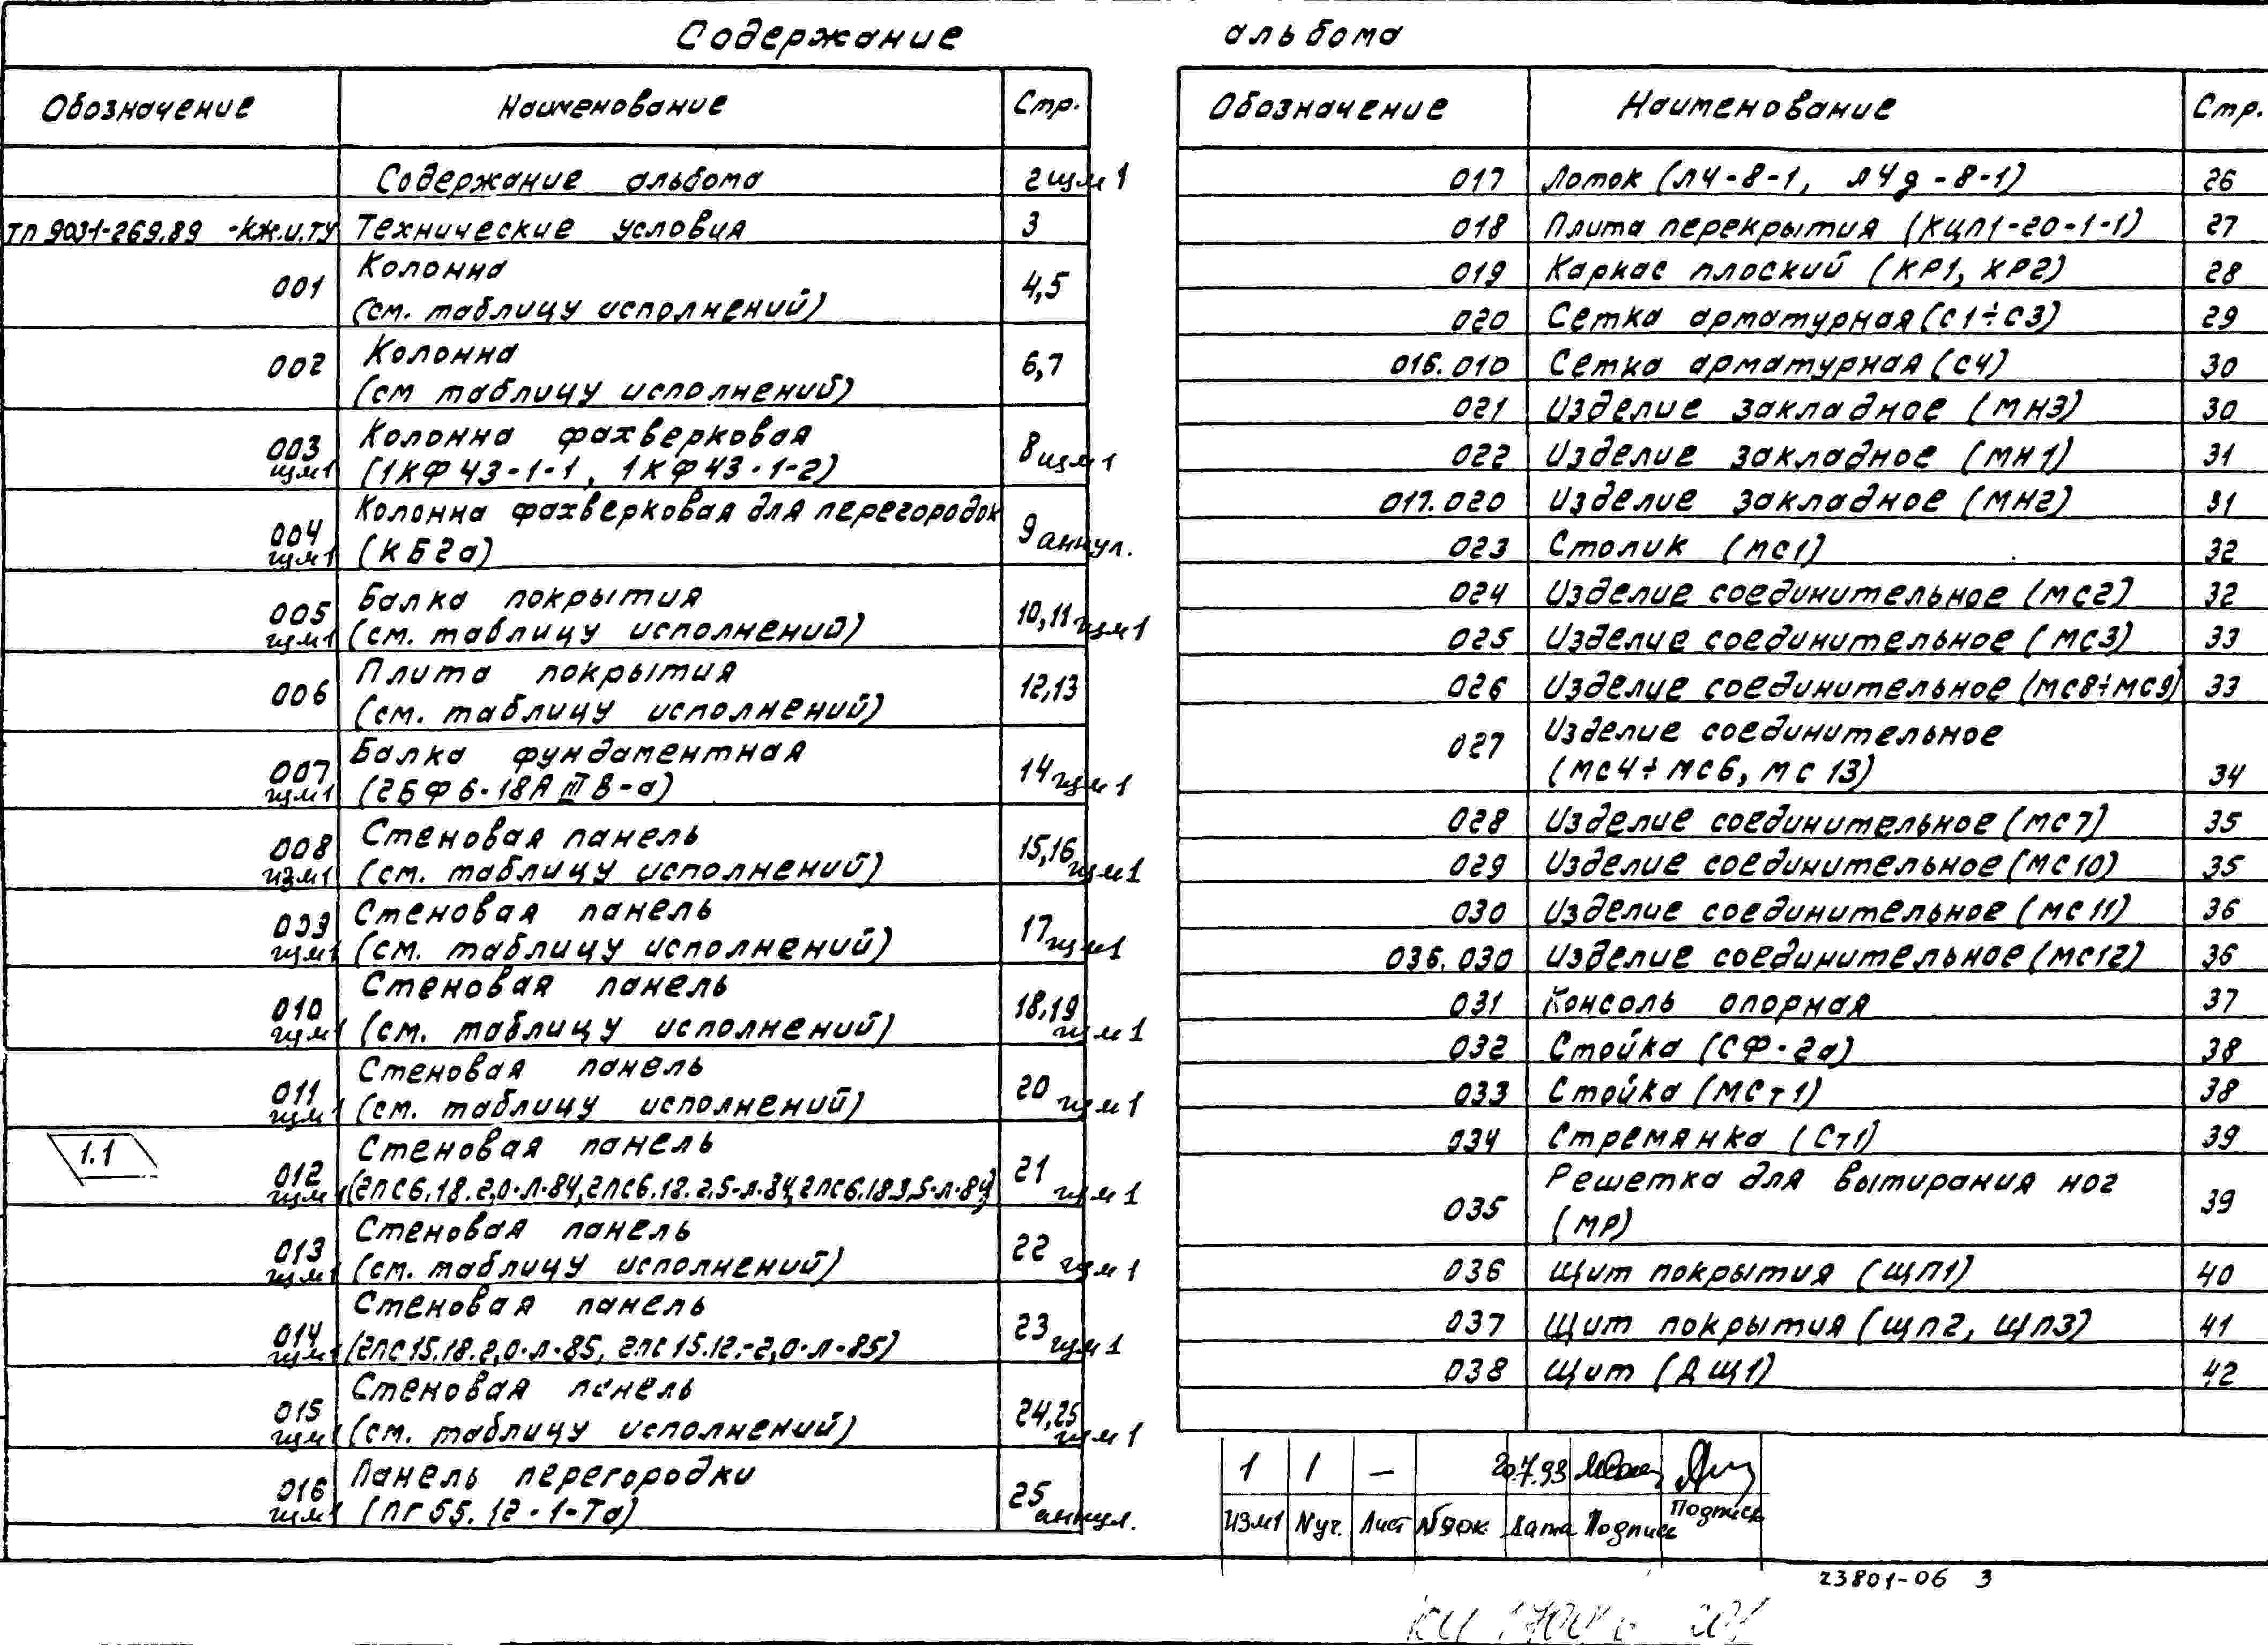 Содержание альбома
Обозначение Наименование Стр.
Содержание альбома 2 изм1
ТП 903-1-269.89 -КЖ.И.ТУ Технические условия 3
001 Колонна
(см. таблицу исполнений) 4,5
002 Колонна
(см таблицу исполнений) 6,7
003 изм1 Колонна фахверковая
(1КФ43-1-1, 1КФ43-1-2) 8 изм1
004 изм1 Колонна фахверковая для перегородок
(КБ2а) 9 аннул.
005 изм1 Балка покрытия
(см. таблицу исполнений) 10,11 изм1
006 Плита покрытия
(см. таблицу исполнений) 12,13
007 изм1 Балка фундаментная
(2БФ6-18АIIIВ-а) 14 изм1
008 изм1 Стеновая панель
(см. таблицу исполнений) 15,16 изм1
009 изм1 Стеновая панель
(см. таблицу исполнений) 17 изм1
010 изм1 Стеновая панель
(см. таблицу исполнений) 18,19 изм1
011 изм1 Стеновая панель
(см. таблицу исполнений) 20 изм1
1.1
012 изм1 Стеновая панель
(2ПС6.18.2,0-Л-84, 2ПС6.18.2,5-Л-84, 2ПС6.18.3,5-Л-84) 21 изм1
013 изм1 Стеновая панель
(см. таблицу исполнений) 22 изм1
014 изм1 Стеновая панель
(2ПС15.18.2,0-Л-85, 2ПС15.12.-2,0-Л-85) 23 изм1
015 изм1 Стеновая панель
(см. таблицу исполнений) 24,25 изм1
016 изм1 Панель перегородки
(ПГ55.12-1-Та) 25 аннул.
Обозначение Наименование Стр.
017 Лоток (Л4-8-1, Л4д-8-1) 26
018 Плита перекрытия (КЦП1-20-1-1) 27
019 Каркас плоский (КР1, КР2) 28
020 Сетка арматурная (С1÷С3) 29
016.010 Сетка арматурная (С4) 30
021 Изделие закладное (МН3) 30
022 Изделие закладное (МН1) 31
017.020 Изделие закладное (МН2) 31
023 Столик (МС1) 32
024 Изделие соединительное (МС2) 32
025 Изделие соединительное (МС3) 33
026 Изделие соединительное (МС8÷МС9) 33
027 Изделие соединительное
(МС4÷МС6, МС13) 34
028 Изделие соединительное (МС7) 35
029 Изделие соединительное (МС10) 35
030 Изделие соединительное (МС11) 36
036.030 Изделие соединительное (МС12) 36
031 Консоль опорная 37
032 Стойка (СФ-2а) 38
033 Стойка (МСт1) 38
034 Стремянка (Ст1) 39
035 Решетка для вытирания ног
(МР) 39
036 Щит покрытия (ЩП1) 40
037 Щит покрытия (ЩП2, ЩП3) 41
038 Щит (ДЩ1) 42
1 1 — 20.7.93
Изм1 Nуч. Лист Nдок. Дата Подпись Подпись
23801-06 3